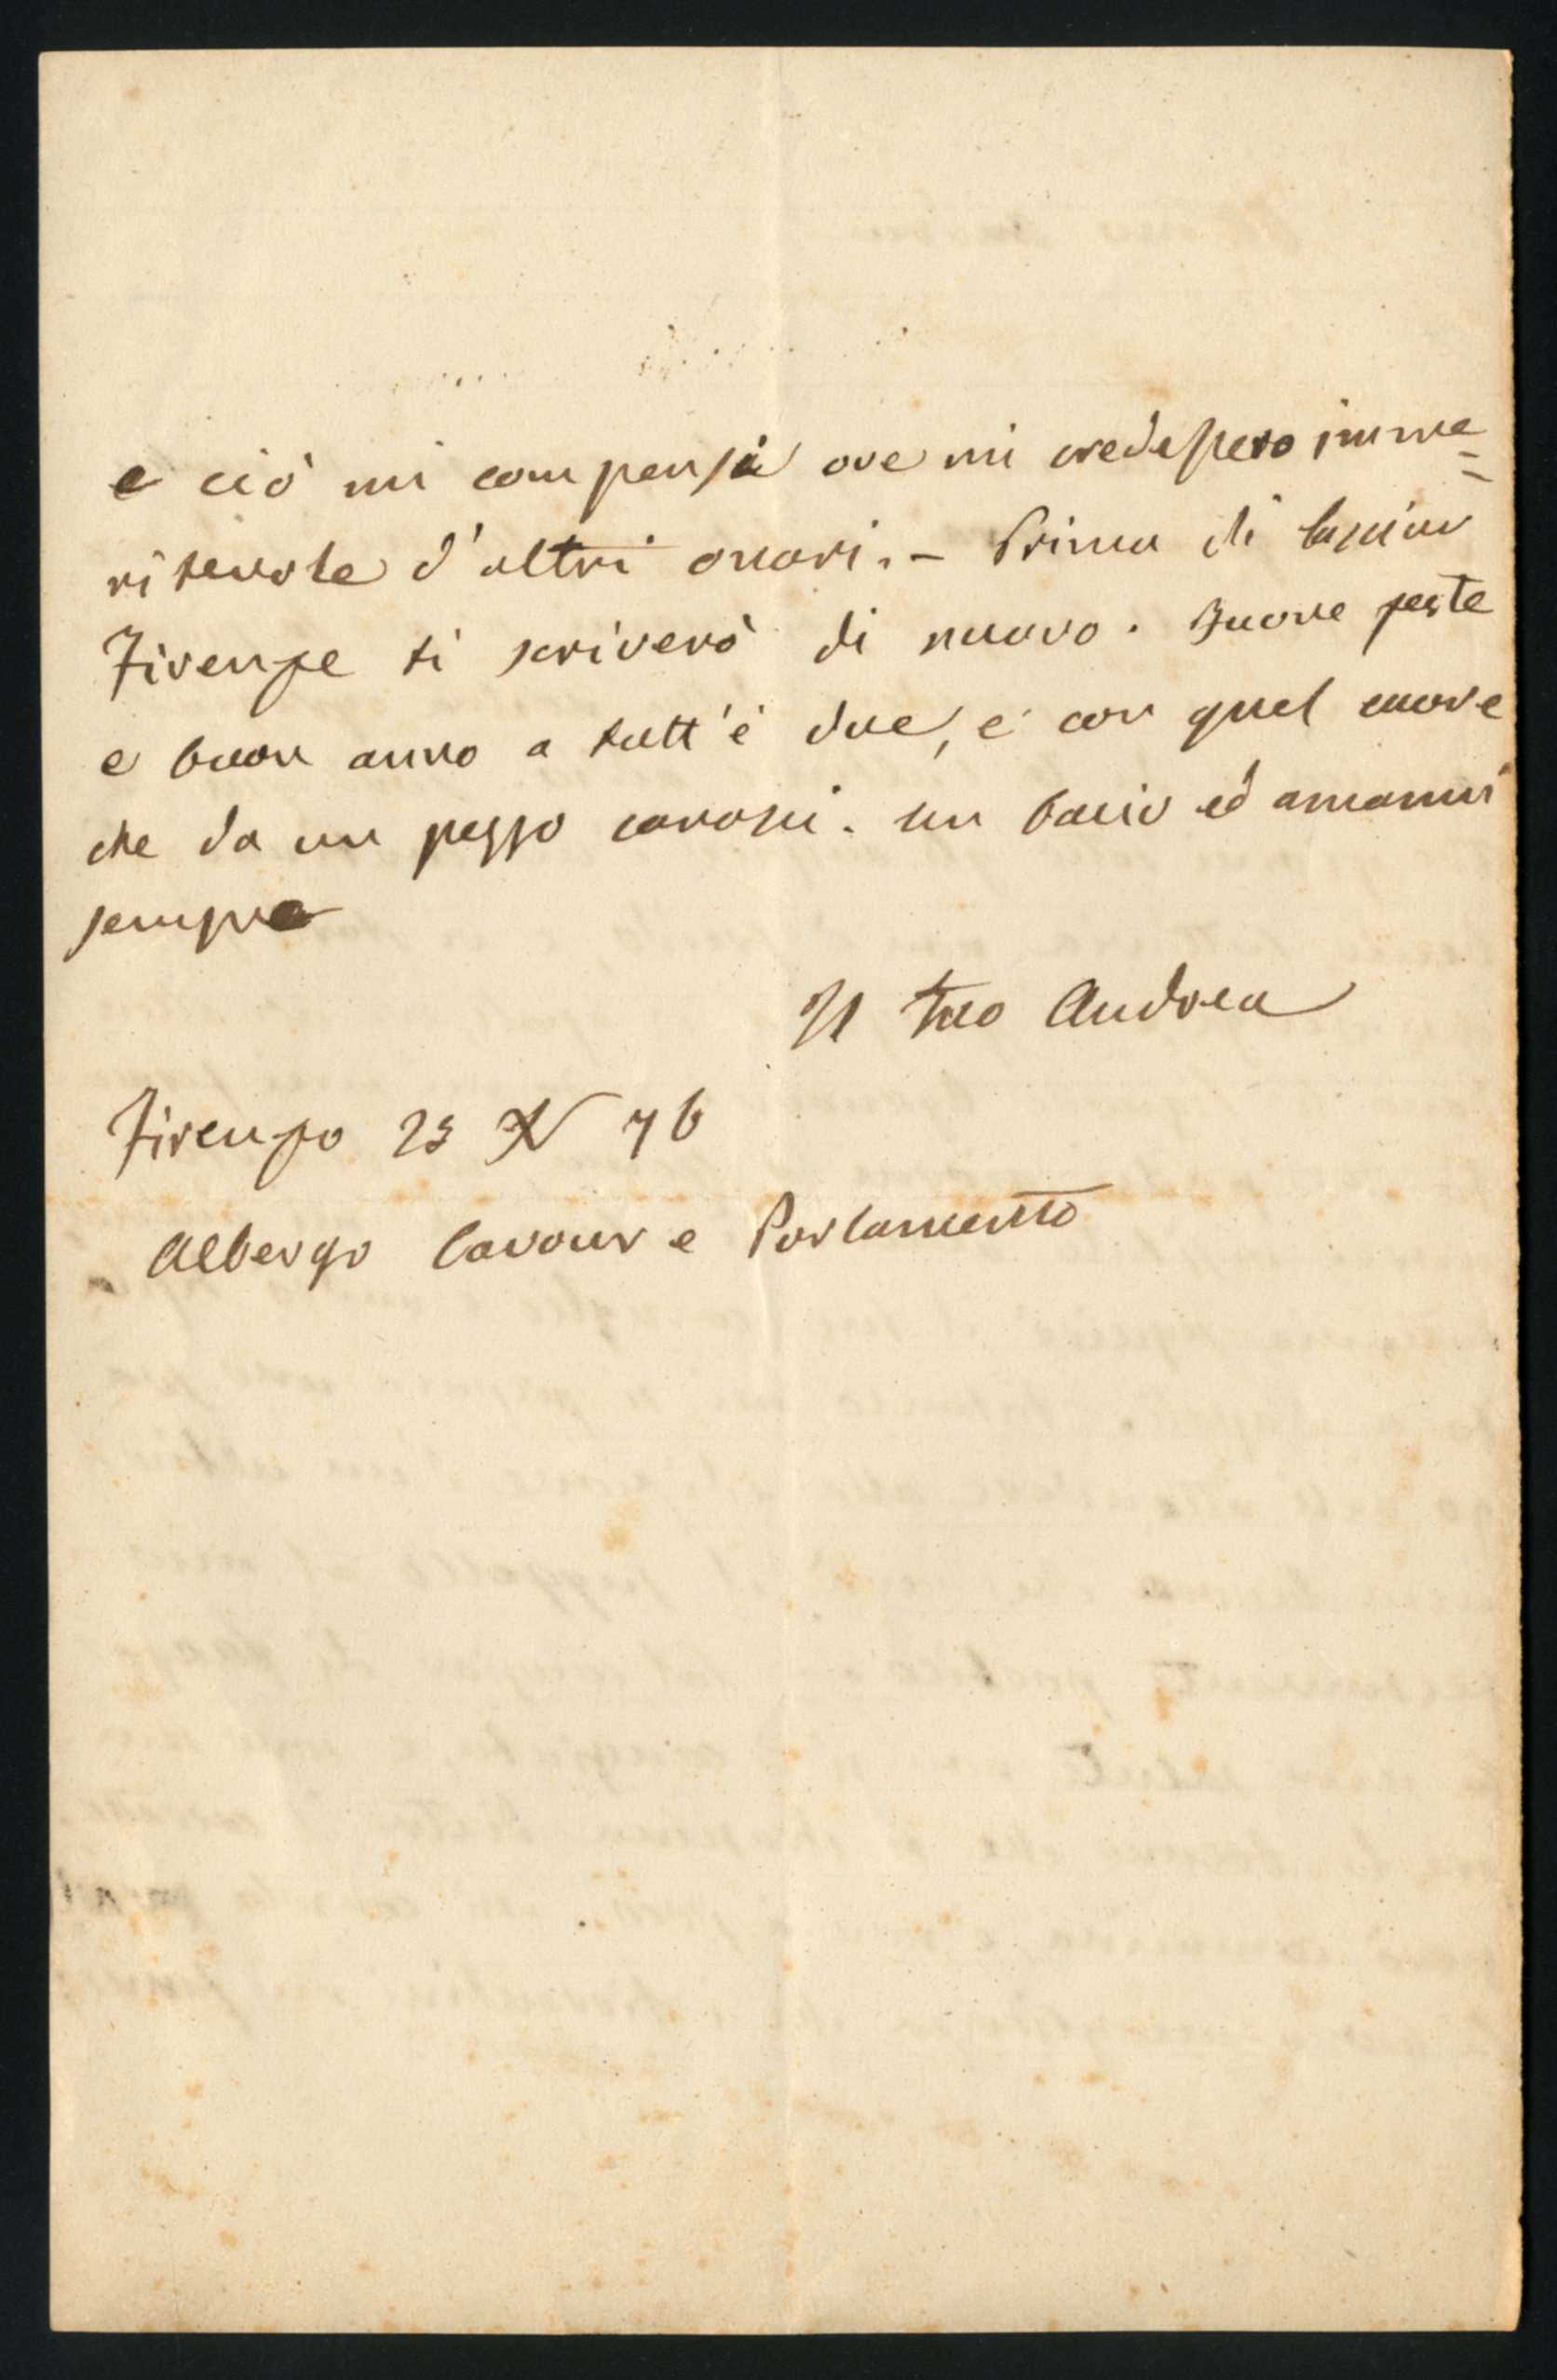 e ciò mi compensa ove mi credessero imme=
ritevole d'altri onori. - Prima di lasciar
Firenze ti scriverò di nuovo. Buone feste
e buon anno a tutt'è due, e con quel cuore
che da un pezzo conosci. un bacio ed amami
sempre
Il tuo Andrea
Firenze 23 76
Albergo Cavour e Parlamento